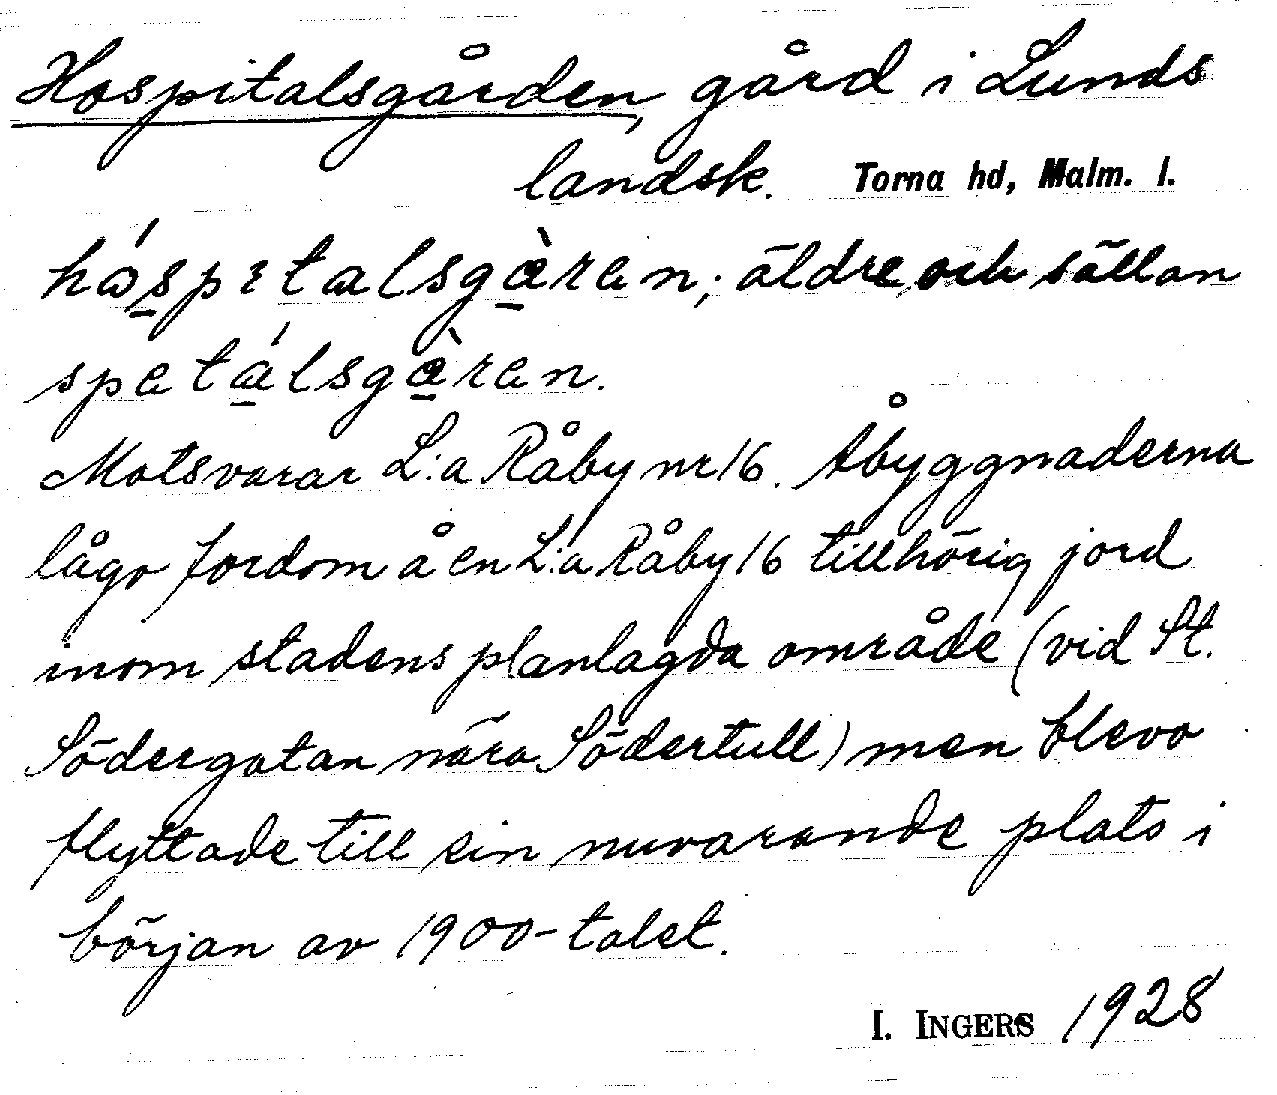 Hospitalsgården, gård i Lunds
landsk. Torna hd, Malm. l.
háspıtalsgàren; äldre och sällan
spetálsgàren.
Motsvarar L:a Råby nr 16. Åbyggnaderna
lågo fordom å en L:a Råby 16 tillhörig jord
inom stadens planlagda område (vid St.
Södergatan nära Södertull) men blevo
flyttade till sin nuvarande plats i
början av 1900-talet.
I. INGERS 1928